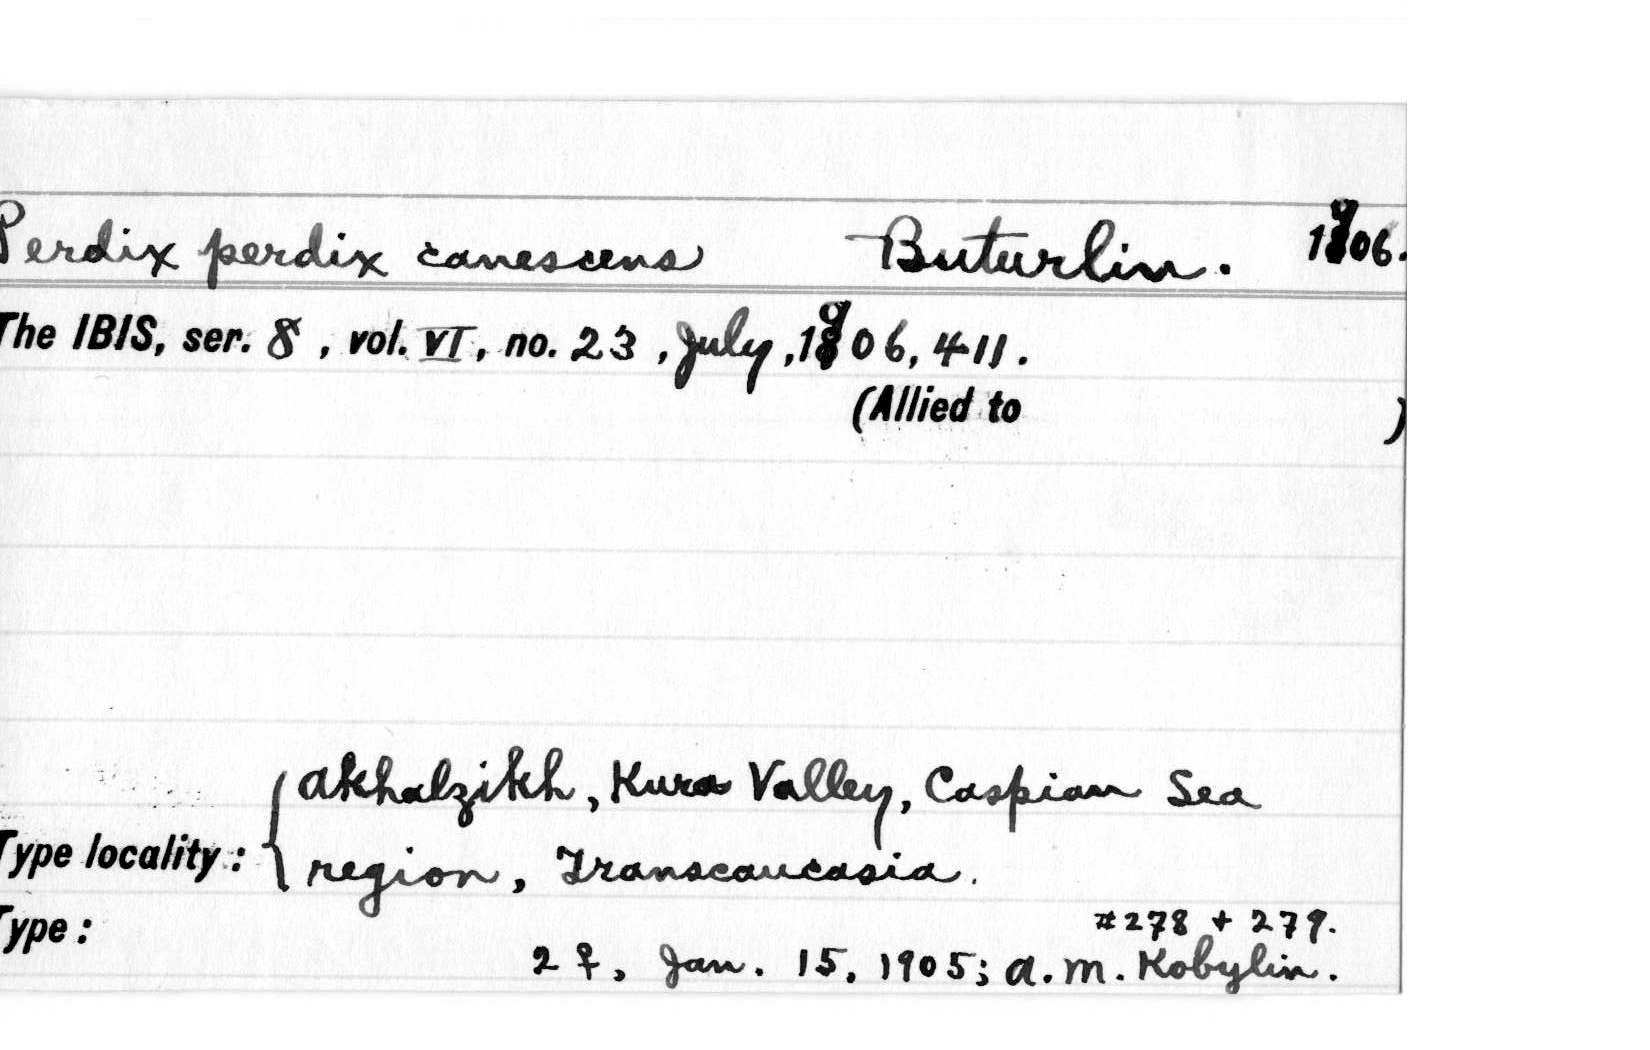 Perdix perdix canescens Buturlin. 1906.
The IBIS, ser. 8, vol. VI, no. 23, July, 1906, 411.
(Allied to )
Type locality: { Akhalzikh, Kura Valley, Caspian Sea
region, Transcaucasia.
Type: #278 + 279.
2 ♀, Jan. 15, 1905; A. M. Kobylin.